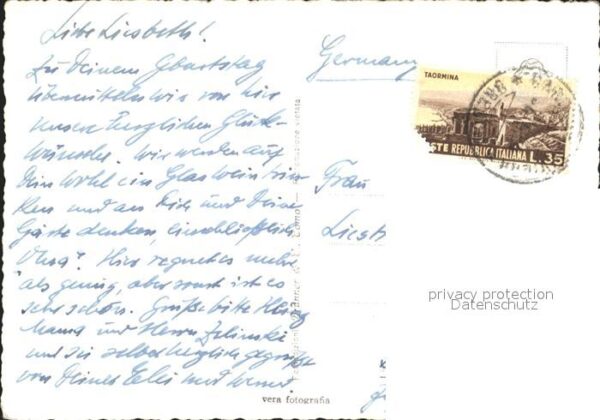 Liebe Liesbeth!
Zu Deinem Geburtstag
übermitteln wir von hier
unsere herzlichen Glück-
wünsche. Wir werden auf
Dein Wohl ein Glas Wein trin-
ken und an Dich und Deine
Gäste denken, einschließlich
Hier regnet es mehr
als genug, aber sonst ist es
sehr schön. Grüße bitte
Mama und Herrn Zelinski
und sei selbst herzlich gegrüßt
von Deiner und
vera fotografia
Riproduzione vietata
Germany
TAORMINA
STE REPUBBLICA ITALIANA L. 35
Frau
Liesb
privacy protection
Datenschutz